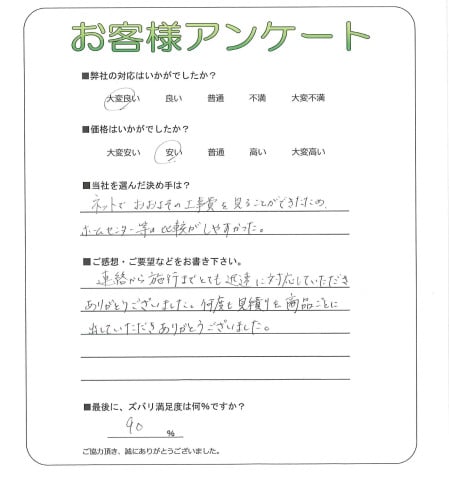 お客様アンケート
■弊社の対応はいかがでしたか？
大変良い 良い 普通 不満 大変不満
■価格はいかがでしたか？
大変安い 安い 普通 高い 大変高い
■当社を選んだ決め手は？
ネットで おおよその工事費を見ることができたため、
ホームセンター等と比較がしやすかった。
■ご感想・ご要望などをお書き下さい。
連絡から施行までとても迅速に対応していただき
ありがとうございました。何度も見積りを商品ごとに
出していただきありがとうございました。
■最後に、ズバリ満足度は何%ですか？
90 %
ご協力頂き、誠にありがとうございました。